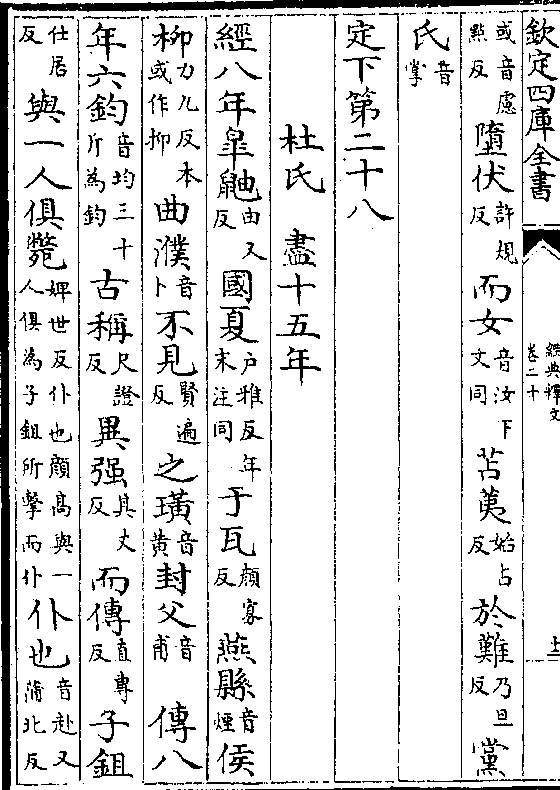 欽定四庫全書
經典釋文
卷二十
或音慮㸃反墮伏許規反而女音汝下文同苫荑始占反於難乃旦反黨
氏音掌
定下第二十八
杜氏 盡十五年
經八年皐鼬由又反國夏戶雅反年末注同于瓦顔寡反燕縣音煙侯
柳力九反本或作抑曲濮音卜不見賢遍反之璜音黄封父音甫 傳八
年六鈞音均三十斤為鈞古稱尺證反異强其丈反而傳直專反子鉏
仕居反與一人俱斃婢世反仆也顔高與一人俱為子鉏所擊而仆仆也音赴又蒲北反